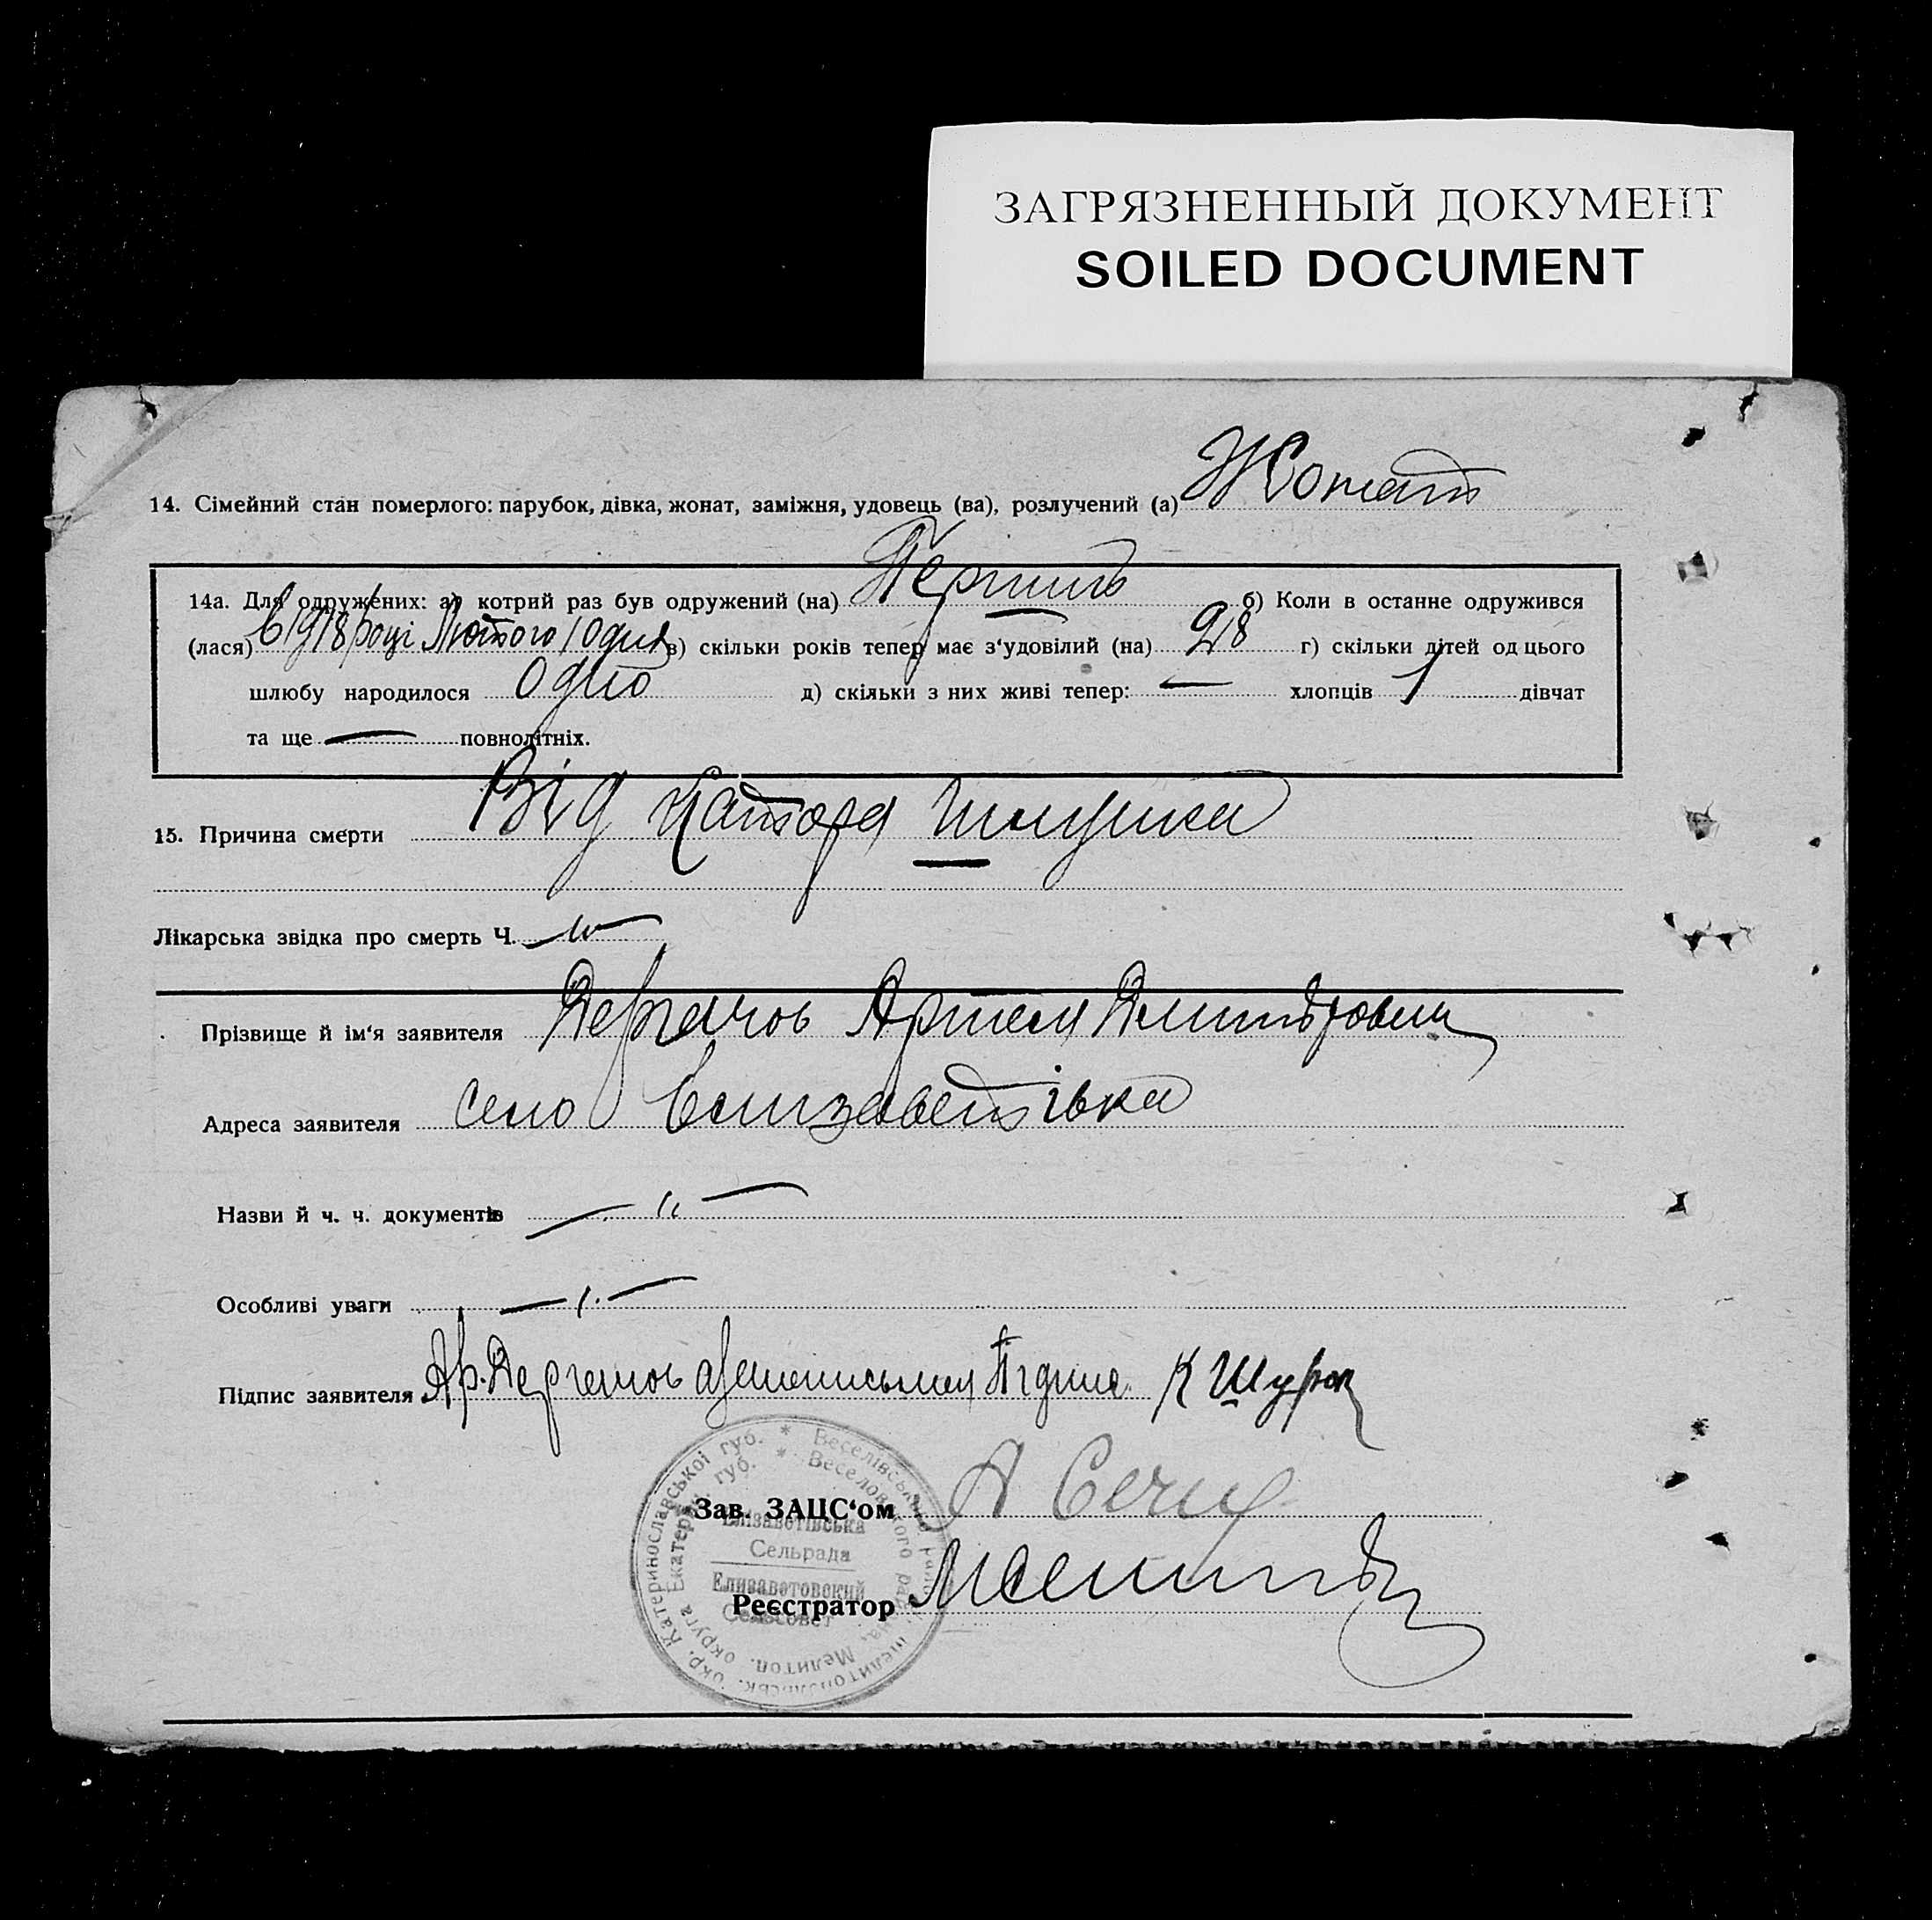 ЗАГРЯЗНЕННЫЙ ДОКУМЕНТ
SOILED DOCUMENT
14. Сімейний стан померлого: парубок, дівка, жонат, заміжня, удовець (ва), розлучений (а) Жонат
14а. Для одружених: а) котрий раз був одружений (на) Перший б) Коли в останне одружився
(лася) в 1918 році Лютого 10 дня в) скільки років тепер має з‘удовілий (на) 28 г) скільки дітей од цього
шлюбу народилося Одно д) скільки з них живі тепер: — хлопців 1 дівчат
та ще — повнолітніх.
15. Причина смерти Від Катара
Лікарська звідка про смерть Ч. — " —
Прізвище й ім‘я заявителя Дергачов Артем
Адреса заявителя село Єлизаветівка
Назви й ч. ч. документів — " —
Особливі уваги — " —
Підпис заявителя Ар. Дергачов К Шурок
Зав. ЗАЦС‘ом
Реєстратор
* Веселівського району Мелитопольськ. окр. Катеринославської губ.
* Веселовского района, Мелитоп. округа Екатерин. губ.
Елізаветівська
Сельрада
Елизаветовский
Сельсовет